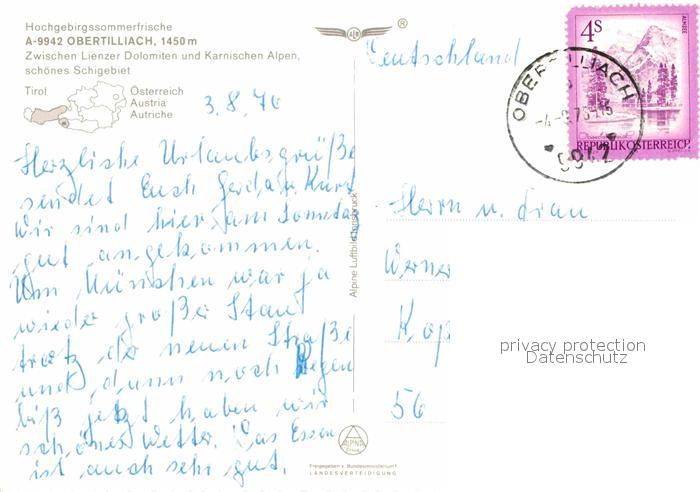 Hochgebirgssommerfrische
A-9942 OBERTILLIACH, 1450 m
Zwischen Lienzer Dolomiten und Karnischen Alpen,
schönes Schigebiet
Tirol
Österreich
Austria
Autriche
3.8.76
Herzliche Urlaubsgrüße
sendet Euch Gerda u. Kurt
Wir sind hier am Sonntag
gut angekommen.
Um München war ja
wieder großer Stau
trotz der neuen Straße
und dann noch Regen
biß jetzt haben wir
schönes Wetter. Das Essen
ist auch sehr gut.
Alpine Luftbild Innsbruck
ALPINE
Freigegeben v. Bundesministerium f.
LANDESVERTEIDIGUNG
®
Deutschland
OBERTILLIACH
9942
4S
ALMSEE
REPUBLIK ÖSTERREICH
Herrn u. Frau
Werner
Kop
privacy protection
Datenschutz
56